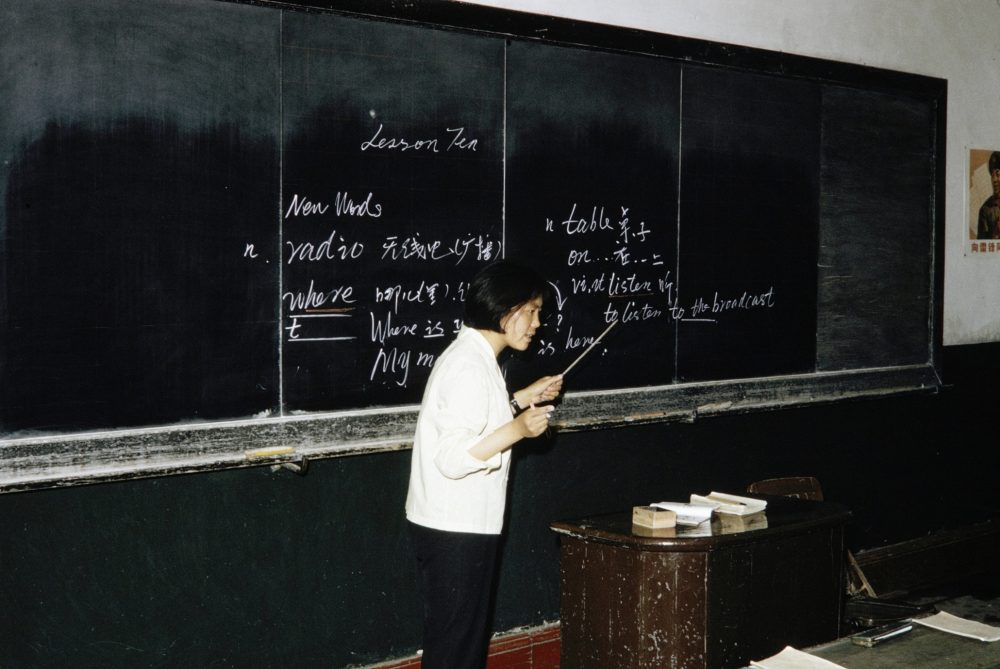 Lesson Ten
New Words
n. radio 无线电、(广播)
where 哪儿(里)、
t
Where is ?
My is here.
n table 桌子
on...在...上
vi, vt listen 听
to listen to the broadcast
向雷锋